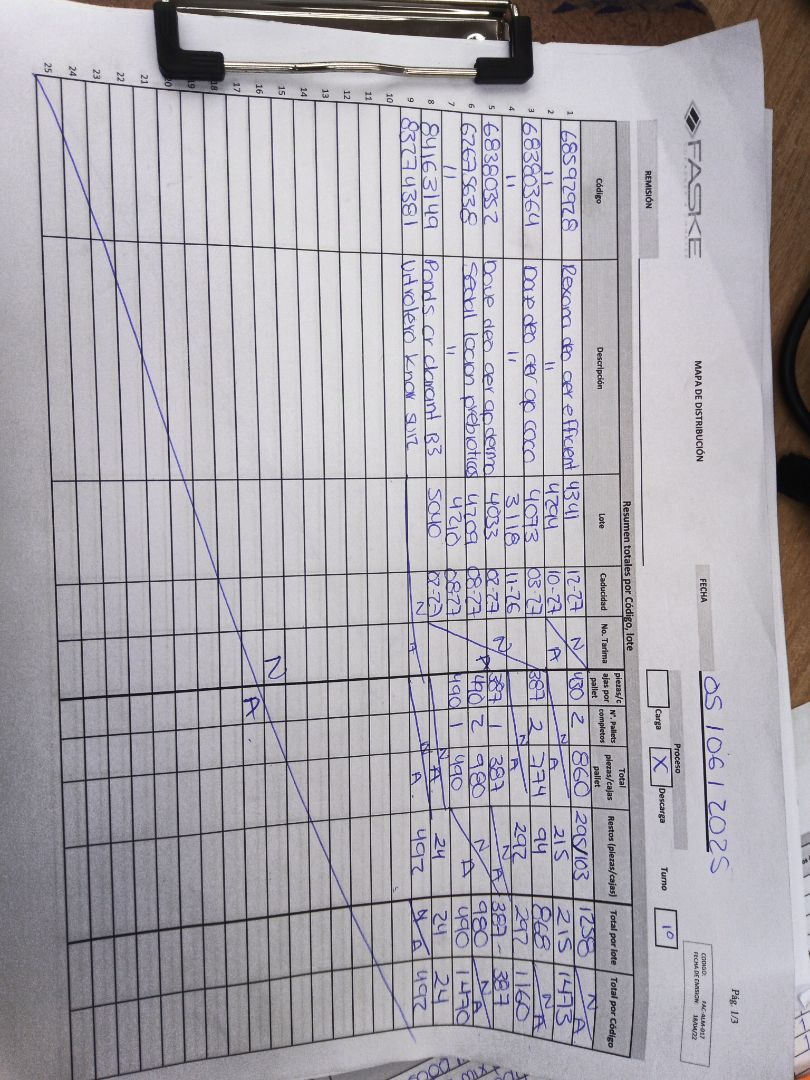 FASKE
MAPA DE DISTRIBUCIÓN
Pág. 1/3
CODIGO: FAC-ALM-017
FECHA DE EMISION: 18/04/22
FECHA 05/06/2025
Proceso
Turno
REMISIÓN
Carga X Descarga 1º
Resumen totales por Código, lote
Código Descripción Lote Caducidad No. Tarima piezas/cajas por pallet Nº. Pallets completos Total piezas/cajas pallet Restos (piezas/cajas) Total por lote Total por Código
1 68592928 Rexona deo aer efficient 4341 12-27 N 430 2 860 295/103 1258 N A
2 " " 4294 10-27 A N A 215 215 1473
3 68380364 Dove deo aer ap coco 4073 03-27 387 2 774 94 868 N A
4 " " 3118 11-26 N A 292 292 1160
5 68380352 Dove deo aer ap dermo 4033 02-27 N 387 1 387 N A 387 - 387
6 62675638 Sedal locion prebioticos 4209 08-27 A 490 2 980 N 980 N A
7 " " 4210 08-27 490 1 490 A 490 1470
8 84163149 Ponds cr clarant B3 5040 02-27 N A 24 24 24
9 83774381 Vitrolero Knor suiz N A N A. 492 N A 492
10
11
12
13
14
15 N
16 A.
17
18
19
20
21
22
23
24
25